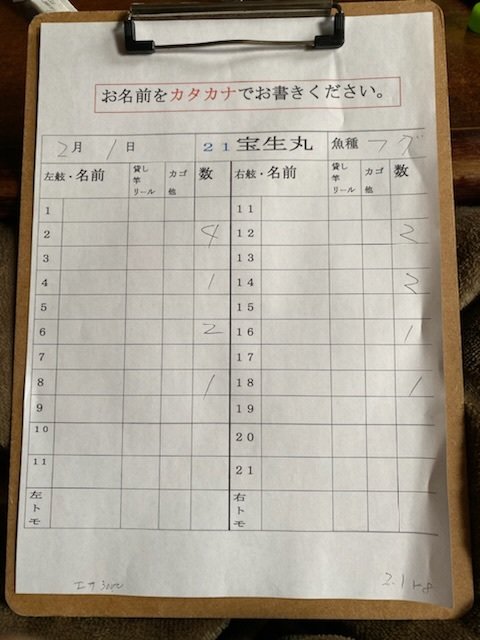 お名前をカタカナでお書きください。
2月 1日 21宝生丸 魚種 フグ
左舷・名前 貸し竿リール カゴ他 数 右舷・名前 貸し竿リール カゴ他 数
1 11
2 4 12 2
3 13
4 1 14 2
5 15
6 2 16 1
7 17
8 1 18 1
9 19
10 20
11 21
左トモ 右トモ
エサ 2.1kg